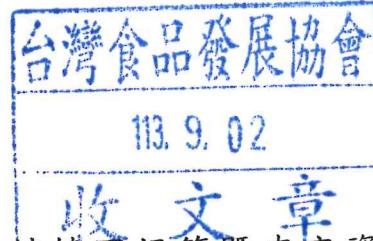 台灣食品發展協會
113. 9. 02
收文章